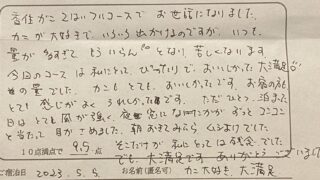 香住がこではいフルコースで お世話になりました。
カニが大好きで、いろいろ ぬかりなのですが、いつも
量が多すぎて もういらん となり 苦しくなります
今回のコースは 私にとって ぴったりで、おいしかった 大満足
の量でした。カニも とても、おいしかったです。お宿の
とても 感じがよく うれしかったです。ただひとつ、泊まった
日は とても 風が強く、夜 窓に なにかが ずっと コツコツ
と当たって 目が さめました。朝 おきてみたら
１０点満点で 9.5 点 そこだけが 私にとっては 残念 でした
でも 大満足です ありがとうございました
ご宿泊日 2023. 5. 5. お名前（匿名） カニ大好き、大満足